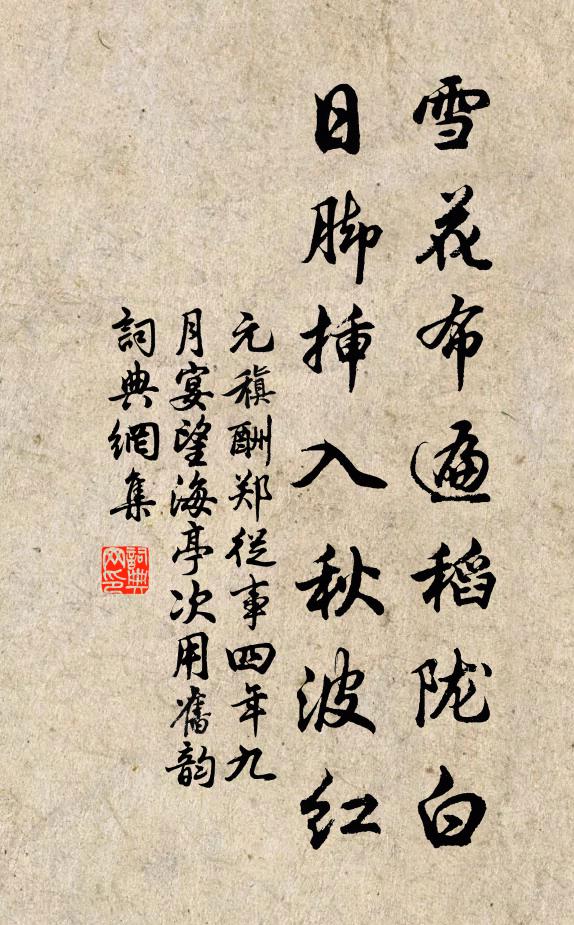 雪花布遍稻陇白
日脚插入秋波红
元稹酬郑从事四年九
月宴望海亭次用旧韵
词典网集
詞典
网印